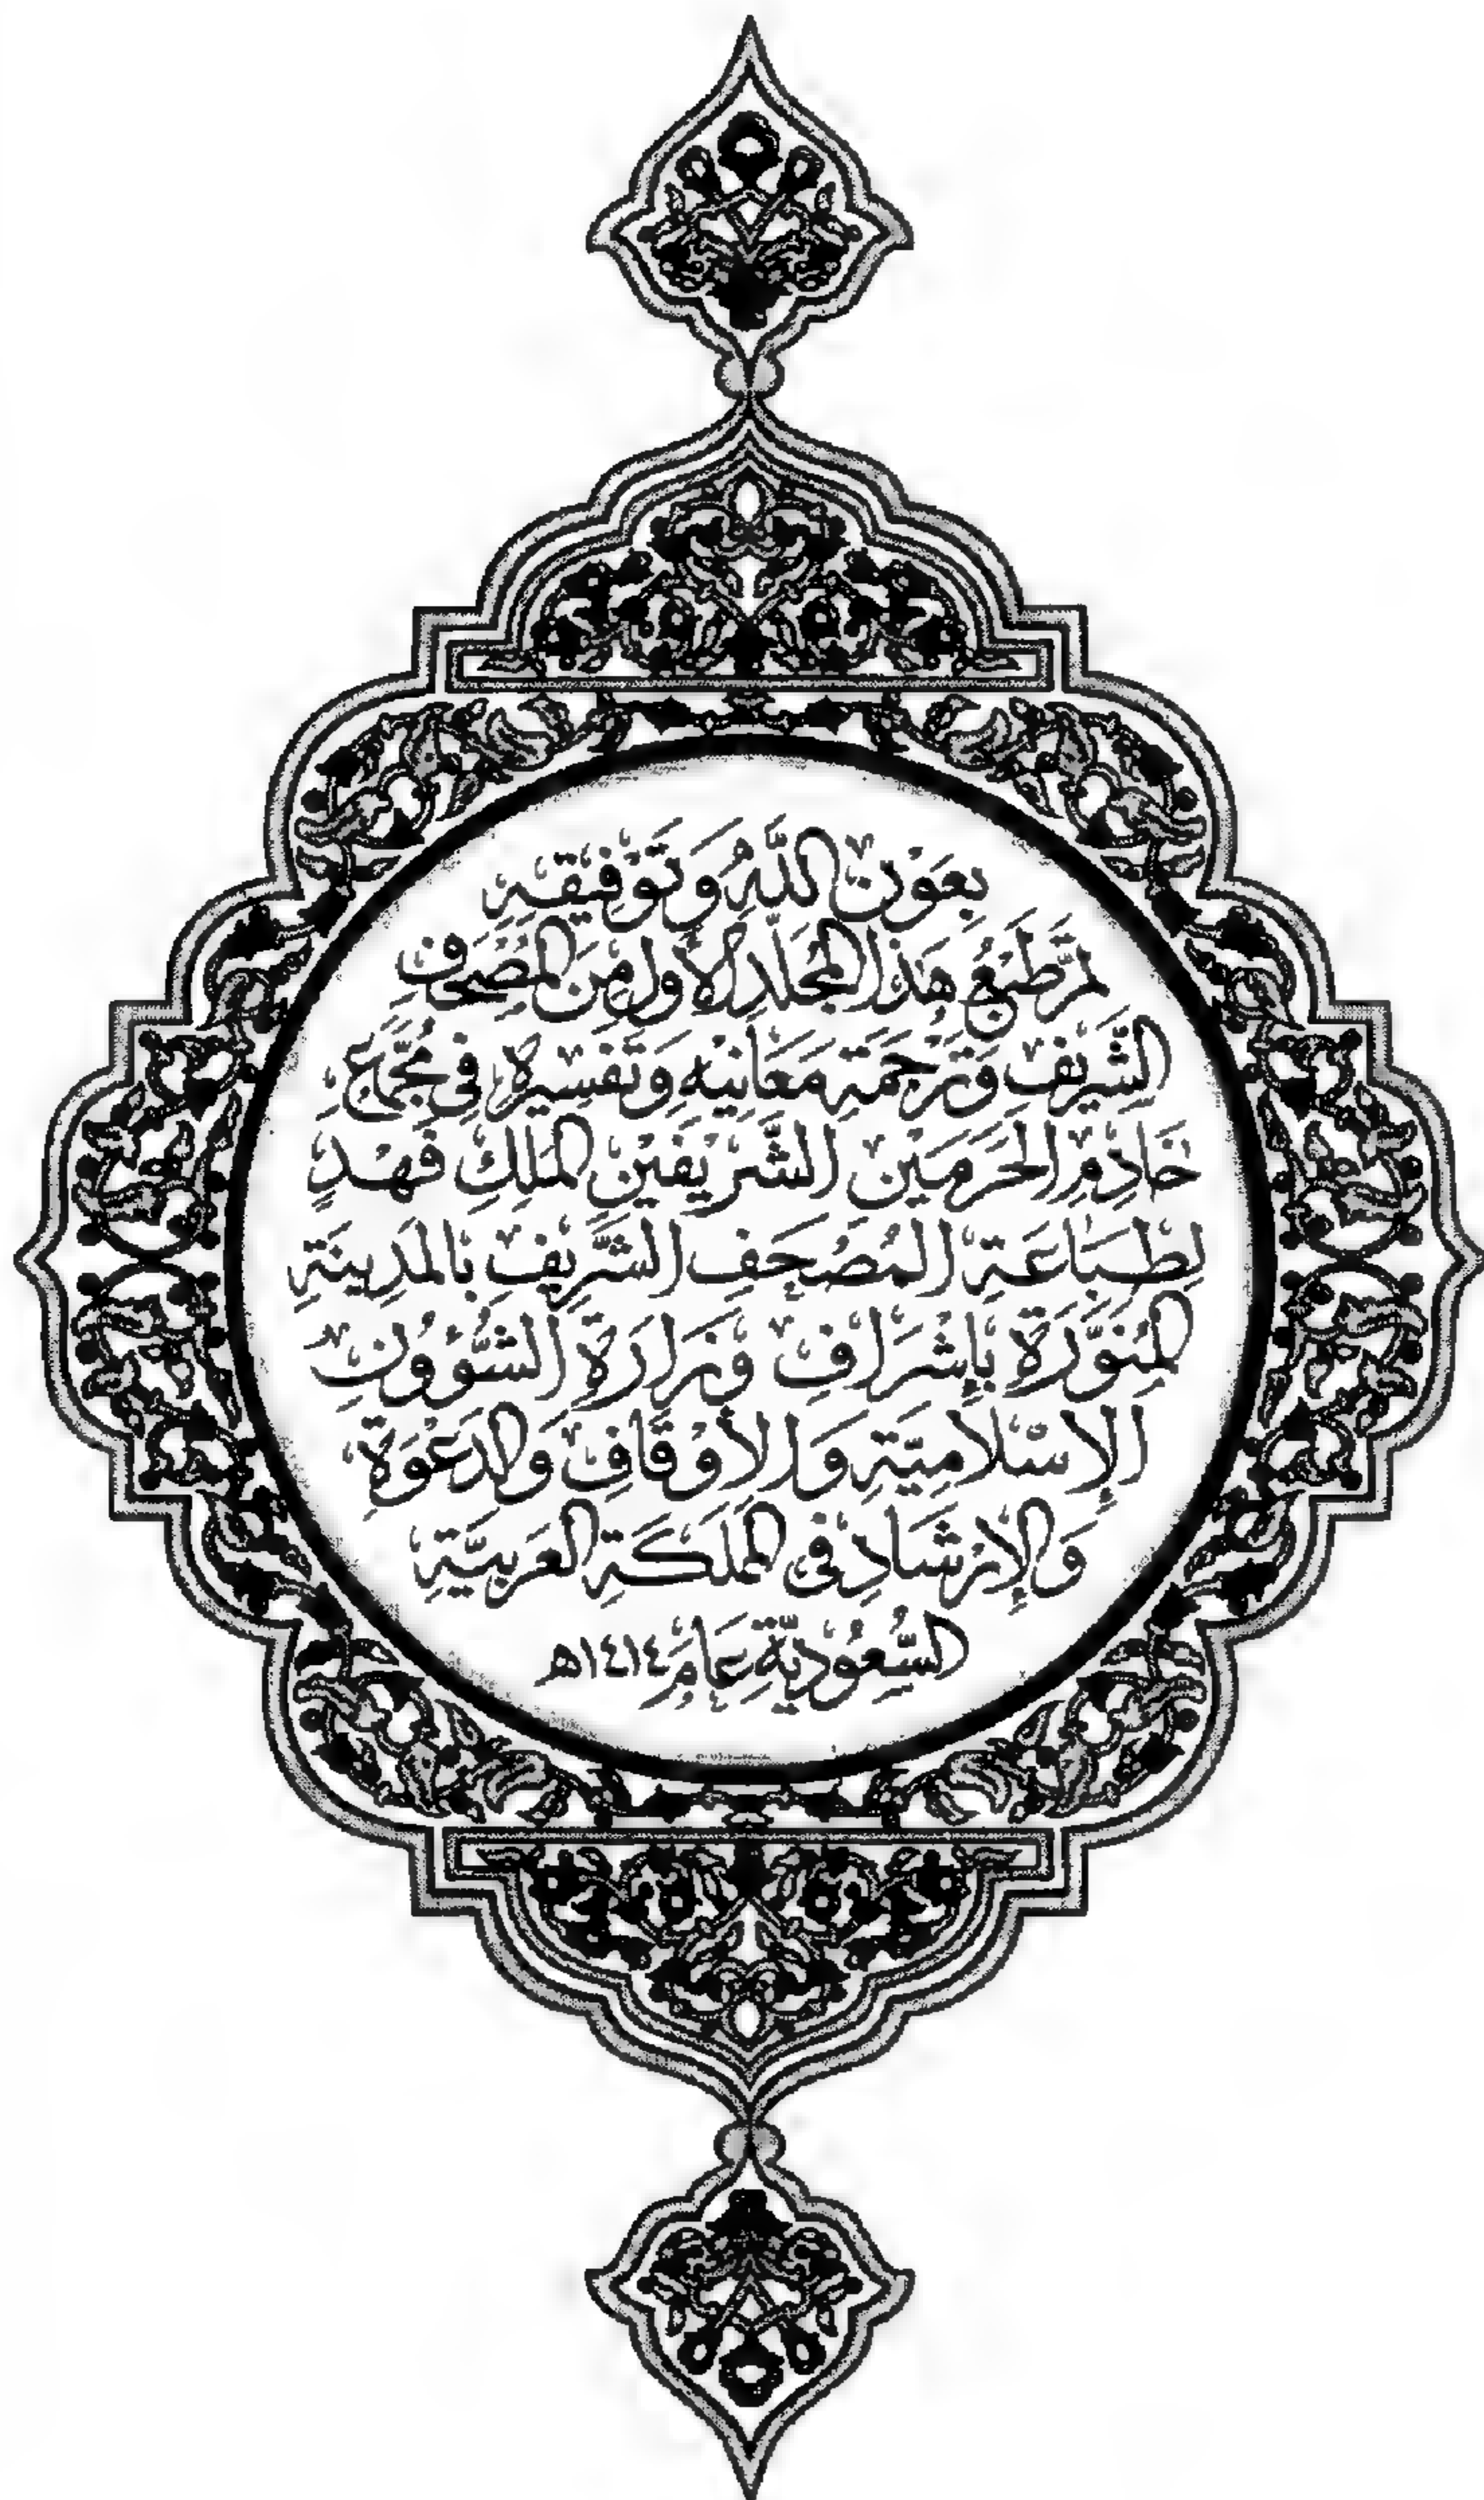 بِعَوْنِ اللَّهِ وَتَوْفِيقِهِ
تَمَّ طَبْعُ هَذَا الْمُجَلَّدِ الْأَوَّلِ مِنَ الْمُصْحَفِ
الشَّرِيفِ وَتَرْجَمَةِ مَعَانِيهِ وَتَفْسِيرِهِ فِي مُجَمَّعِ
خَادِمِ الْحَرَمَيْنِ الشَّرِيفَيْنِ الْمَلِكِ فَهْدٍ
لِطِبَاعَةِ الْمُصْحَفِ الشَّرِيفِ بِالْمَدِينَةِ
الْمُنَوَّرَةِ بِإِشْرَافِ وَزَارَةِ الشُّؤُونِ
الْإِسْلَامِيَّةِ وَالْأَوْقَافِ وَالدَّعْوَةِ
وَالْإِرْشَادِ فِي الْمَمْلَكَةِ الْعَرَبِيَّةِ
السُّعُودِيَّةِ عَامَ ١٤١٤هـ